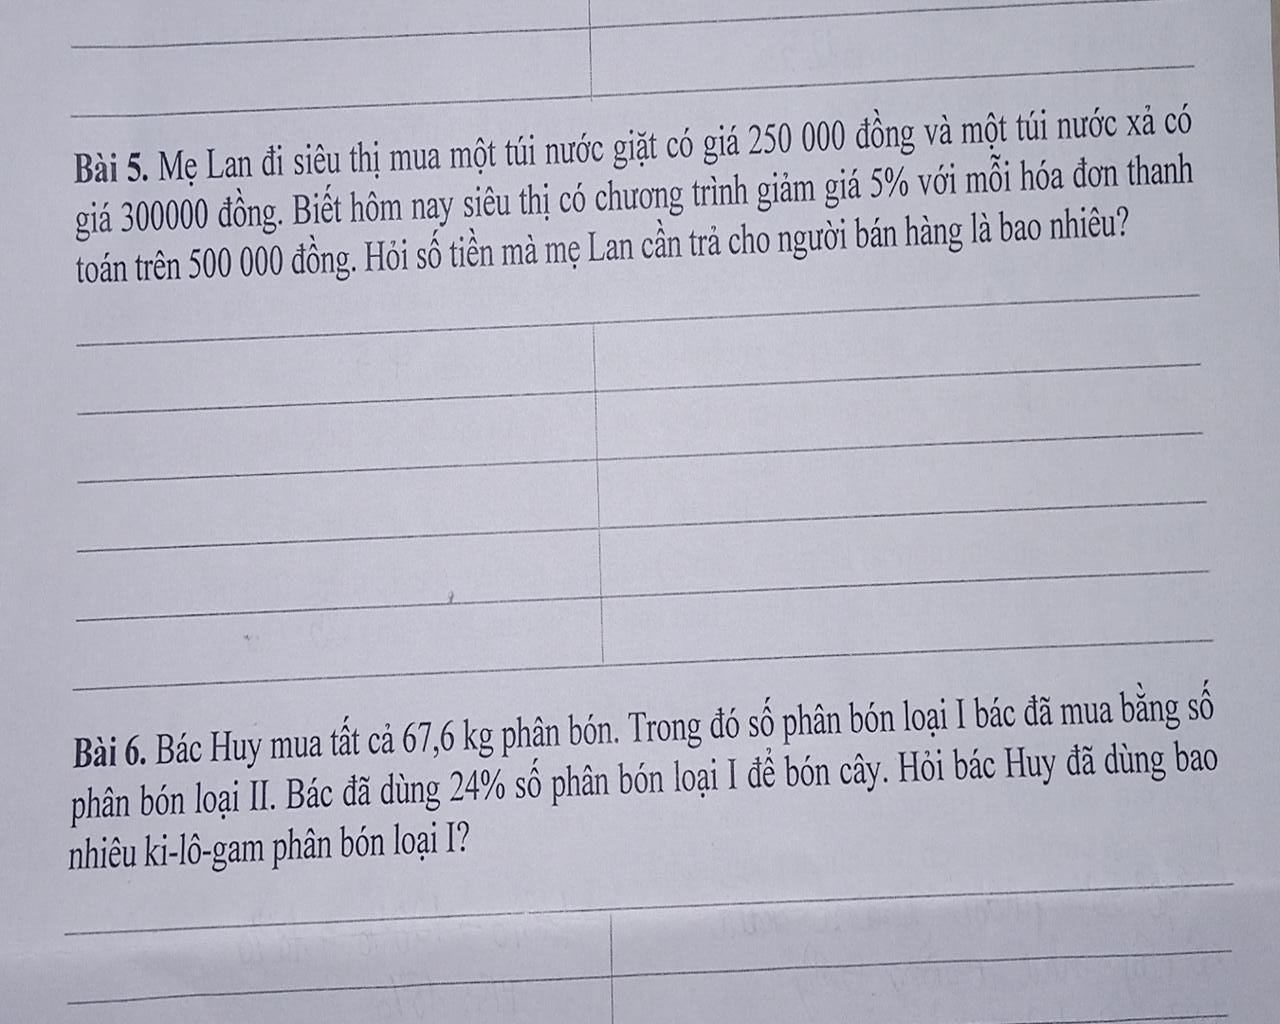 Bài 5. Mẹ Lan đi siêu thị mua một túi nước giặt có giá 250 000 đồng và một túi nước xả có
giá 300000 đồng. Biết hôm nay siêu thị có chương trình giảm giá 5% với mỗi hóa đơn thanh
toán trên 500 000 đồng. Hỏi số tiền mà mẹ Lan cần trả cho người bán hàng là bao nhiêu?
Bài 6. Bác Huy mua tất cả 67,6 kg phân bón. Trong đó số phân bón loại I bác đã mua bằng số
phân bón loại II. Bác đã dùng 24% số phân bón loại I để bón cây. Hỏi bác Huy đã dùng bao
nhiêu ki-lô-gam phân bón loại I?